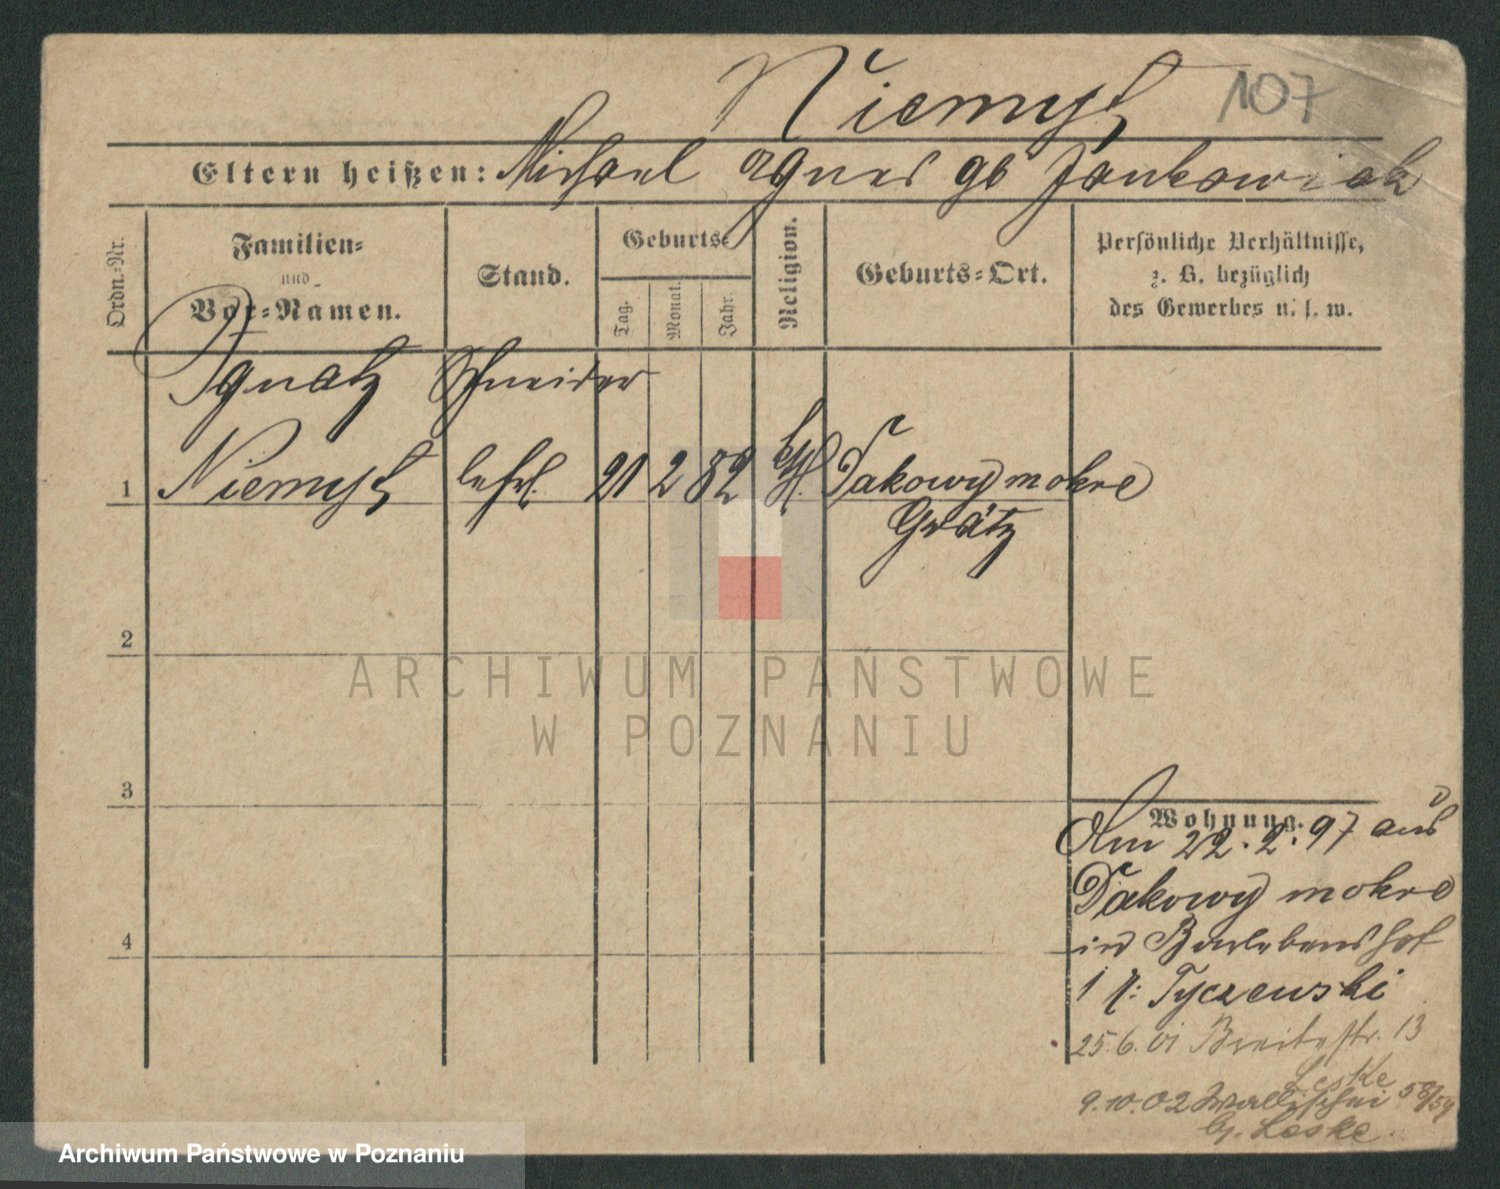 Niemytz 107
Eltern heißen: Michael Agnes gb Jankowiak
Ordn.-Nr.
Familien-
und
Vor-Namen.
Stand.
Geburts-
Tag.
Monat.
Jahr.
Religion.
Geburts-Ort.
Persönliche Verhältnisse,
z. B. bezüglich
des Gewerbes u. s. w.
Ignatz Schneider
1 Niemytz lehrl. 21 2 82 kth. Dakowy mokre
Grätz
2
ARCHIWUM PAŃSTWOWE
W POZNANIU
3
Wohnung.
Am 22.2.97 aus
Dakowy mokre
in Bartholdshof
1 Tyczewski
25.6.01 Breitestr. 13
Leske
9.10.02 Wallischei 58/59
bei Leske.
4
Archiwum Państwowe w Poznaniu